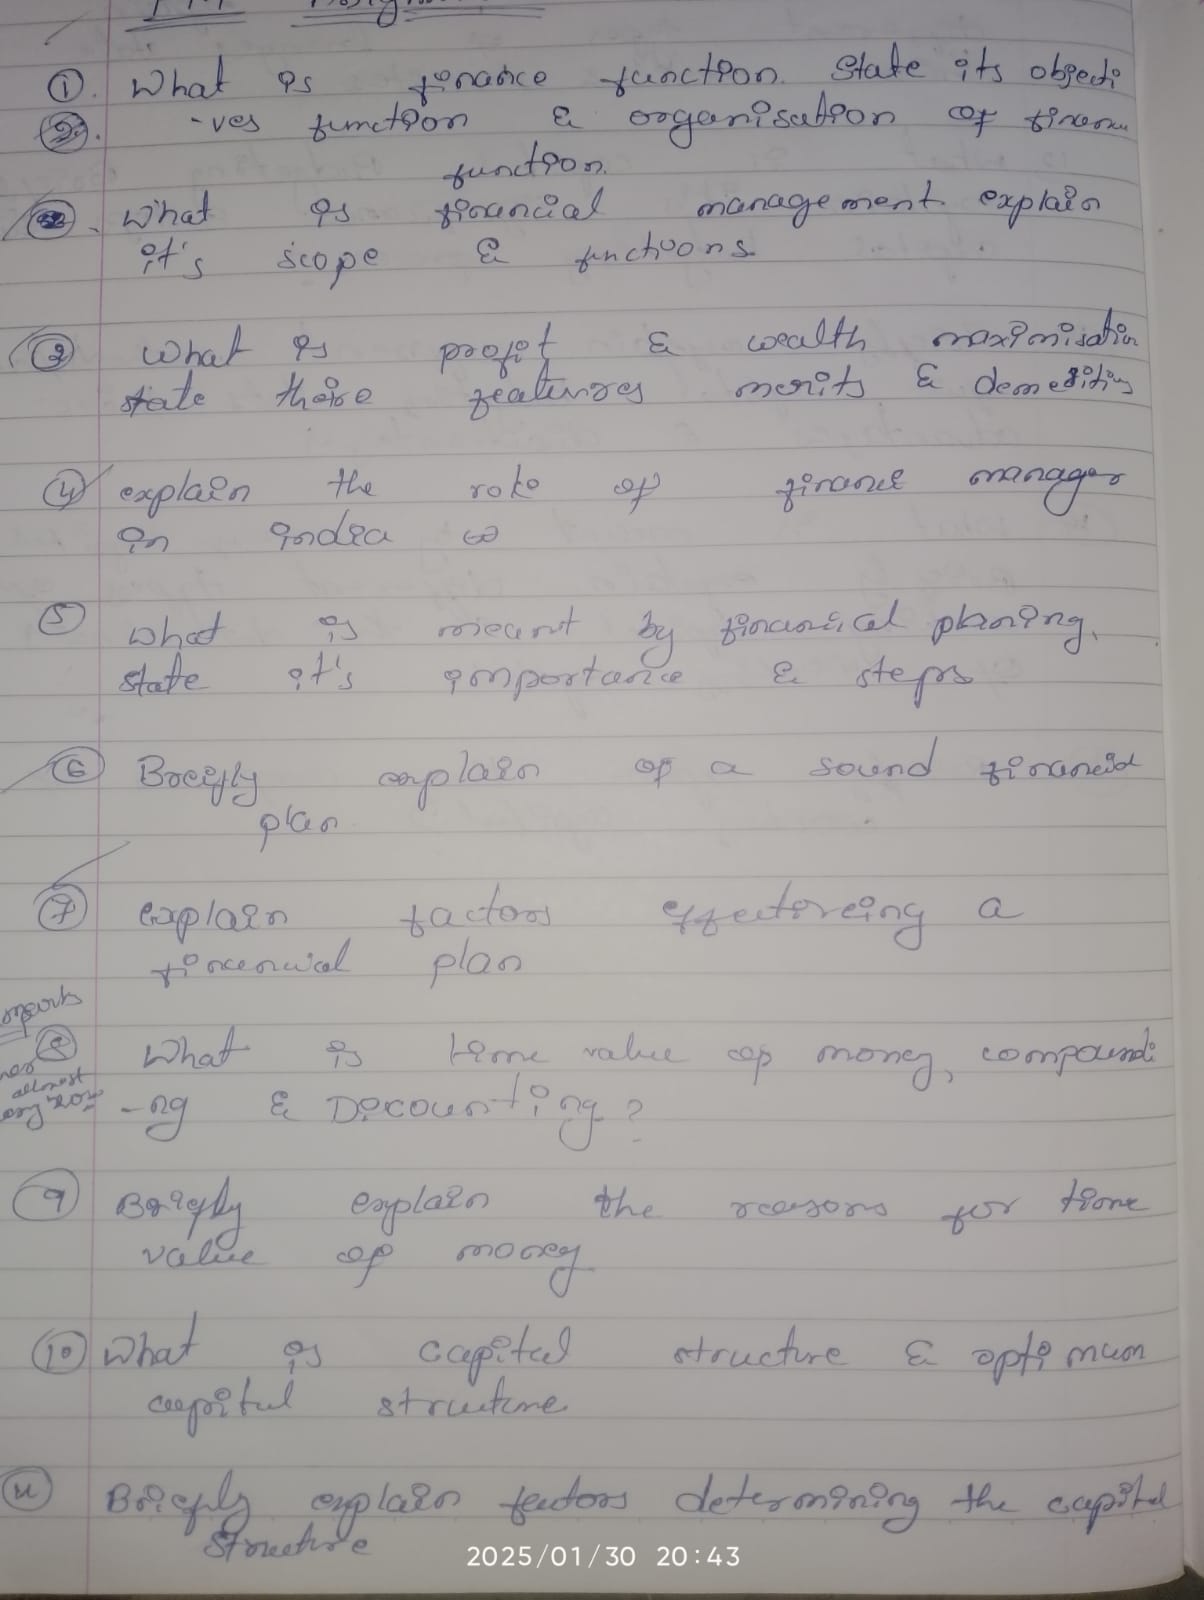 ①. What is finance function. State its objecti
②. -ves function & organisation of
function.
What is financial management explain
it's scope & functions
③ What is profit & wealth maximisation
state theire features merits &
④ explain the role of finance manager
in india
⑤ What is meant by financial planing.
state it's importance & steps
⑥ Breifly explain of a sound financial
plan
⑦ explain factors a
financial plan
⑧ What is time value of money, compoundi
-ng & Discounting?
⑨ Briefly explain the reasons for time
value of money
⑩ What is capital structure & optimum
capital structure.
⑪ Briefly explain factors determining the capital
structure
2025/01/30 20:43